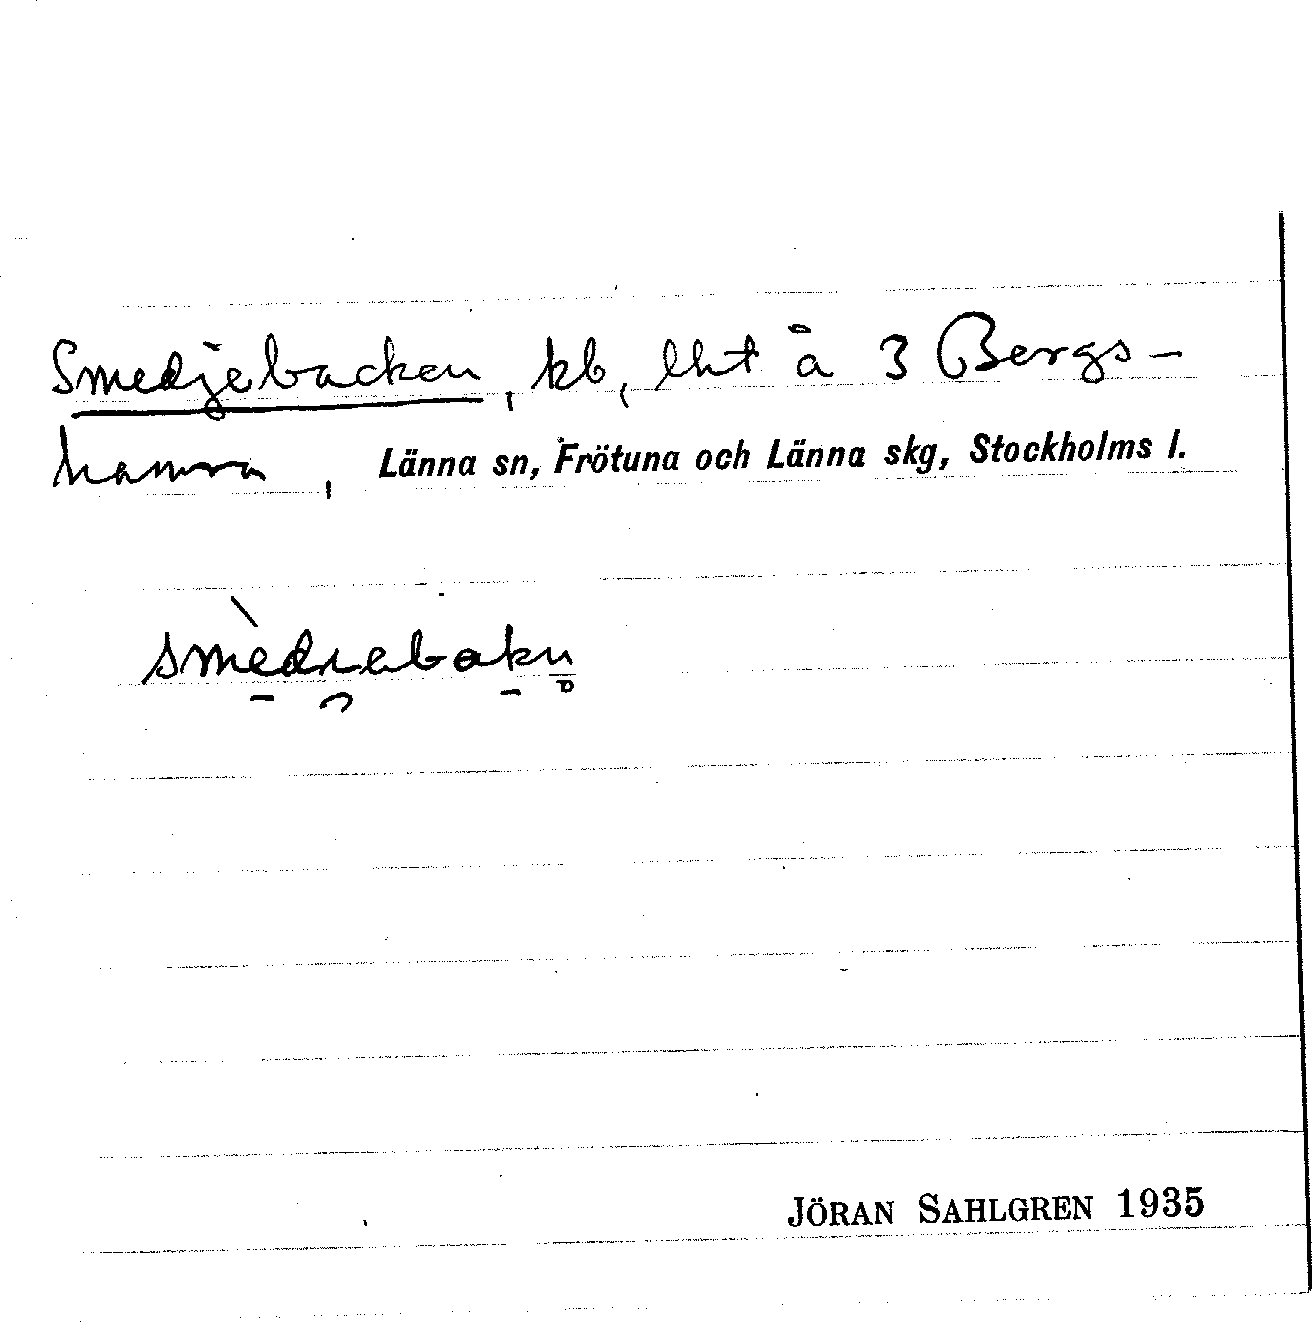 Smedjebacken, kb, lht å 3 Bergs-
hamra, Länna sn, Frötuna och Länna skg, Stockholms l.
smèdıebakn̥
JÖRAN SAHLGREN 1935